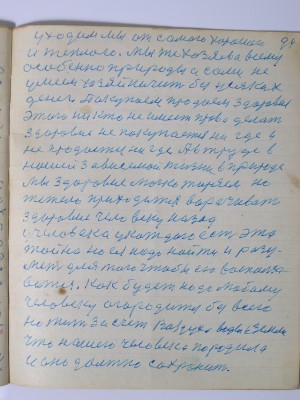 уходим мы от самого хорошего 94
и теплого. Мы те хозяева всему
особенно природы а сами не
умеем хозяйничить бы усяких
денег. Покупаем продаем здоровье
этого никто не имеет прав делать
здоровье не покупается ни где и
не продается ни где. А в труде в
нашей зависимой жизни в природе
мы здоровие можем терять но
тяжело приходится ворачивать
здоровие человеку назад
у человека у каждого есть эта
тайна но ея надо найти и разу-
меть для того чтобы ею
Как будет надо любому
человеку огородится бы всего
но жить за счет воздуха воды и земли
что нашего человека породила
и оно должно сохранить.